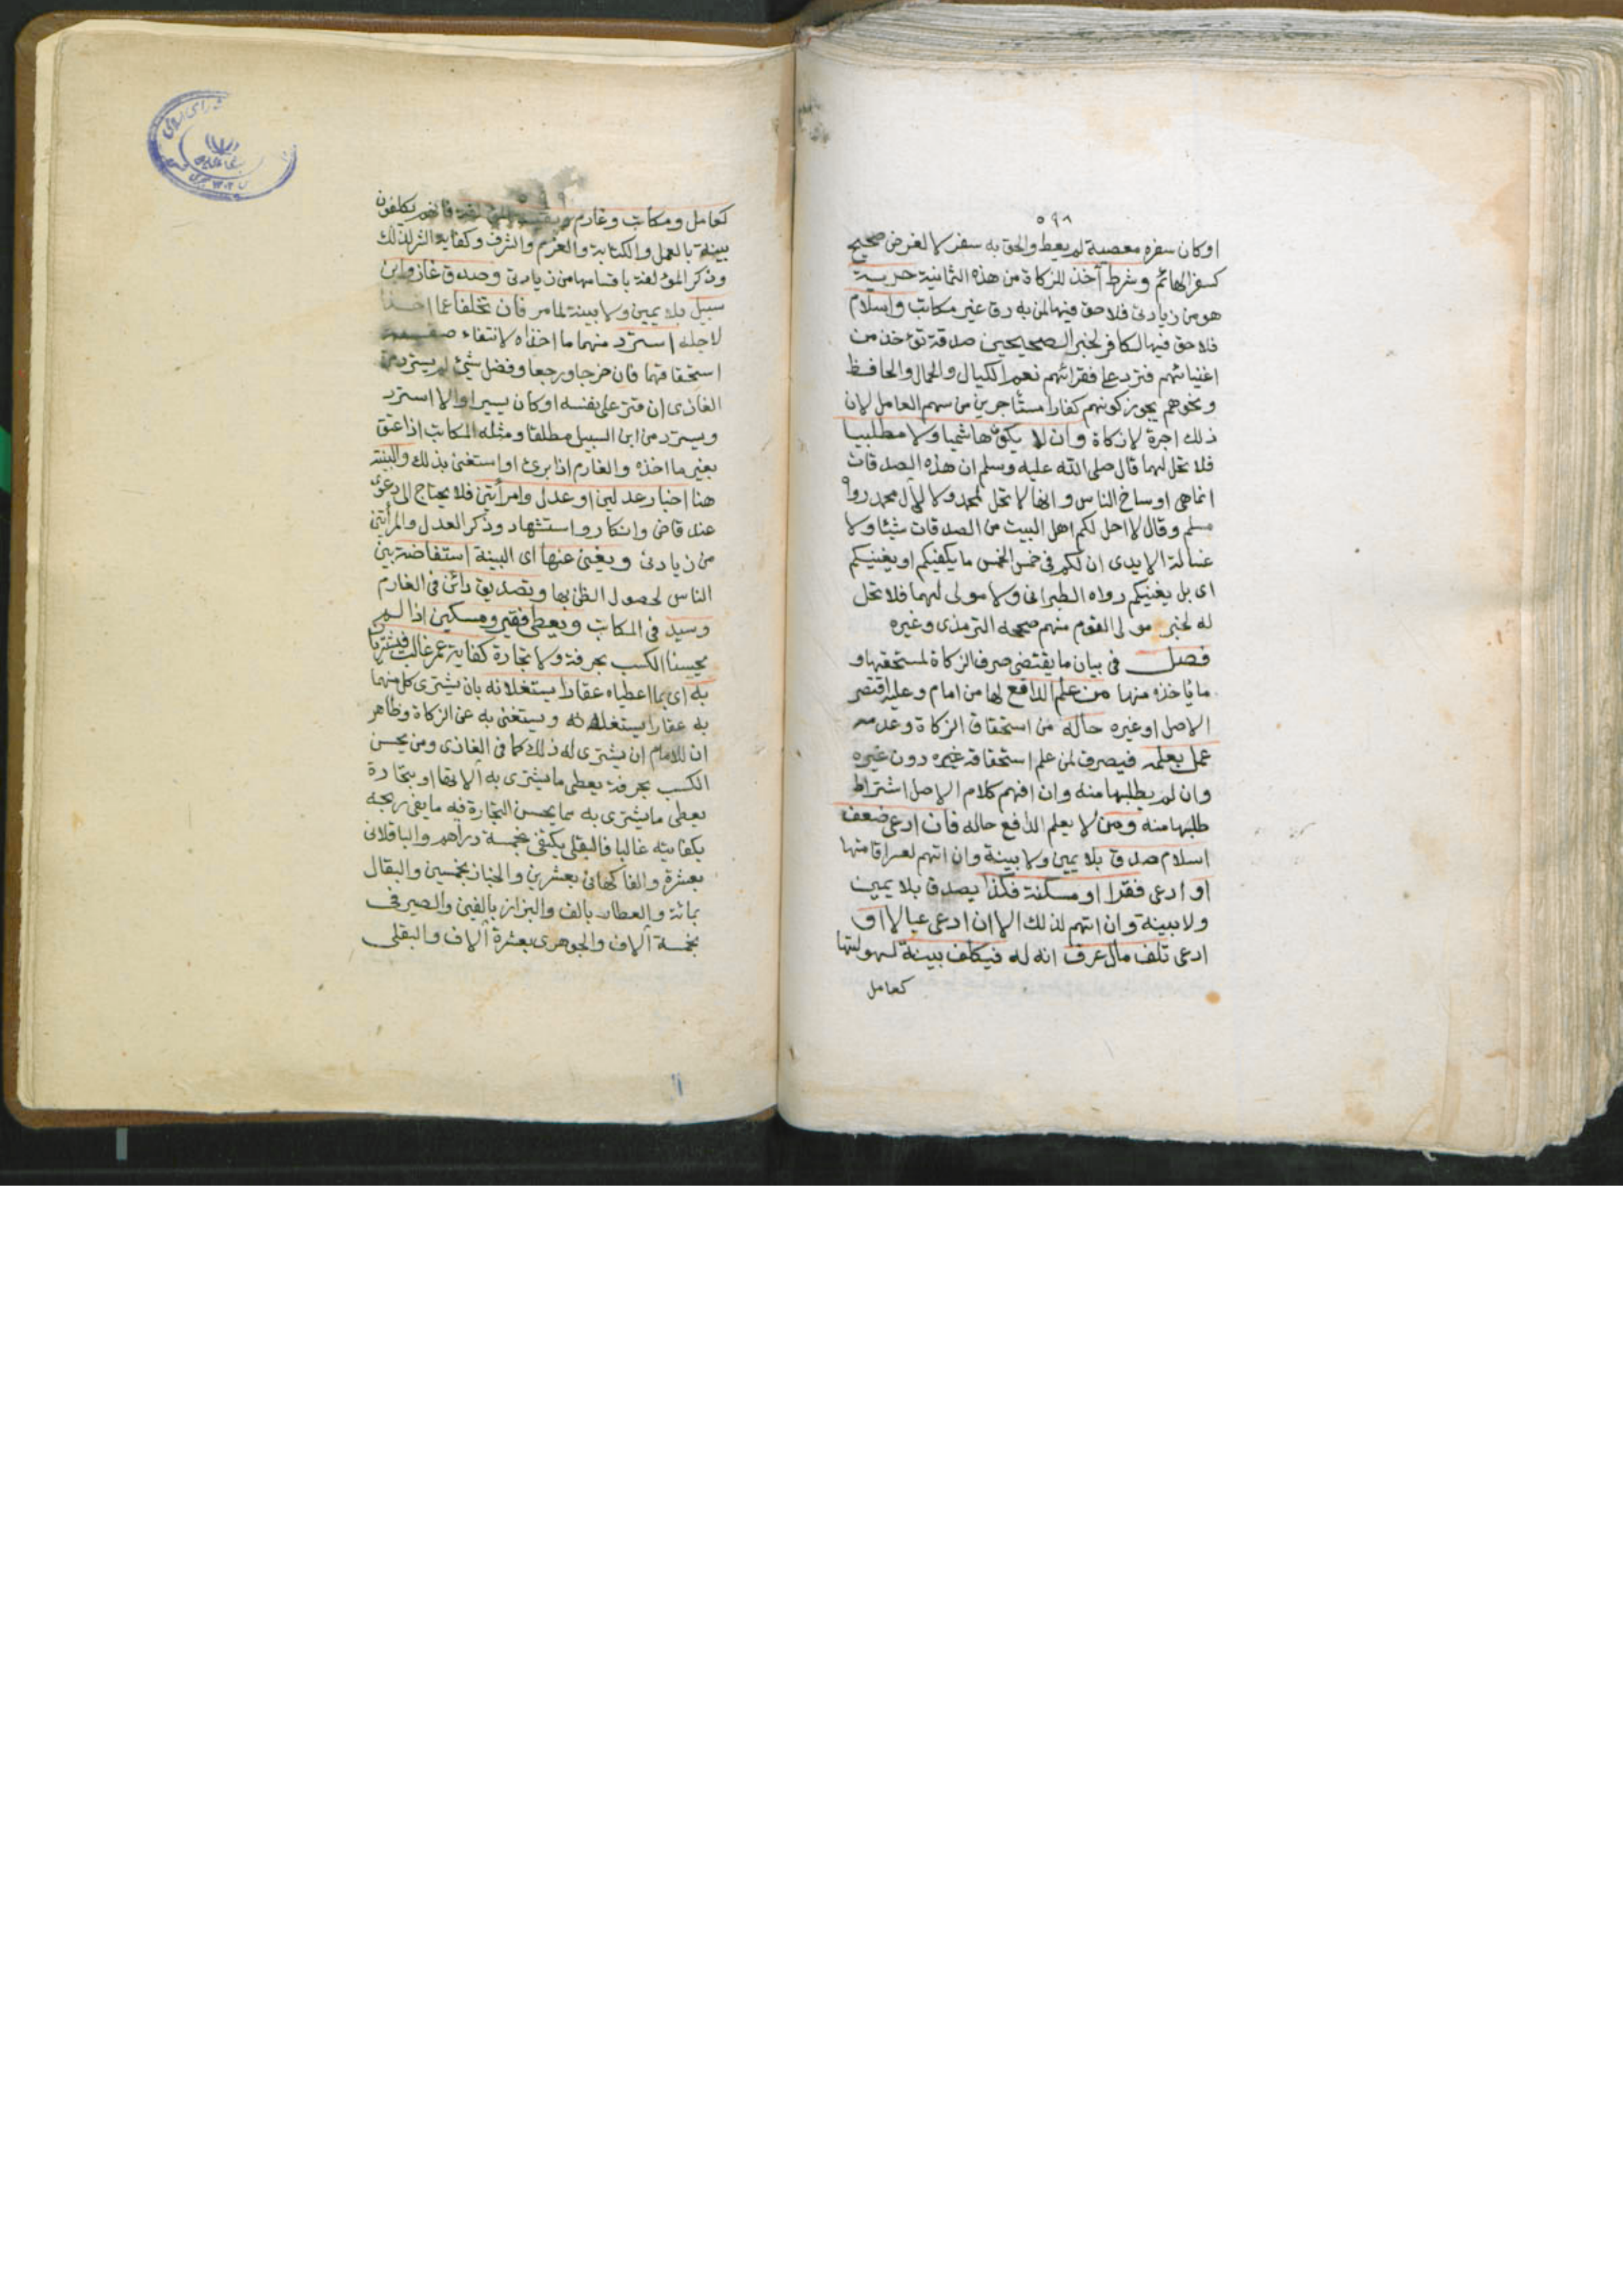 ٥٩٨
اوكان سفره معصية لم يعط والحق به سفر لا لغرض صحيح
كسفر الهائم وشرط آخذ للزكاة من هذه الثمانية حرية
هو من زيادتى فلا حق فيها لمن به رق غير مكاتب واسلام
فلا حق فيها لكافر لخبر الصحيحين صدقة تؤخذ من
اغنيائهم فترد على فقرائهم نعم الكيال والحمال والحافظ
ونحوهم يجوز كونهم كفارا مستأجرين من سهم العامل لان
ذلك اجرة لا زكاة وان لا يكون هاشميا ولا مطلبيا
فلا تحل لهما قال صلى الله عليه وسلم ان هذه الصدقات
انما هى اوساخ الناس وانها لا تحل لمحمد ولا لآل محمد رواه
مسلم وقال لا احل لكم اهل البيت من الصدقات شيئا ولا
غسالة الايدى ان لكم فى خمس الخمس ما يكفيكم او يغنيكم
اى بل يغنيكم رواه الطبرانى ولا مولى لهما فلا تحل
له لخبر مولى القوم منهم صححه الترمذى وغيره
فصل فى بيان ما يقتضى صرف الزكاة لمستحقها و
ما ياخذه منها من علم الدافع لها من امام وعليه اقتصر
الاصل اوغيره حاله من استحقاق الزكاة وعدمه
عمل بعلمه فيصرف لمن علم استحقاقه غيره دون غيره
وان لم يطلبها منه وان افهم كلام الاصل اشتراط
طلبها منه ومن لا يعلم الدافع حاله فان ادعى ضعف
اسلام صدق بلا يمين ولا بينة وان اتهم لعسر اقامتها
او ادعى فقرا او مسكنة فكذا يصدق بلا يمين
ولا بينة وان اتهم لذلك الا ان ادعى عيالا او
ادعى تلف مال عرف انه له فيكلف بينة لسهولتها
كعامل
٥٩٩
كعامل ومكاتب وغارم وبقية المؤلفة فانهم يكلفون
بينة بالعمل والكتابة والغرم والشرف وكفاية الشر لذلك
وذكر المؤلفة باقسامها من زيادتى وصدق غاز وابن
سبيل بلا يمين ولا بينة لما مر فان تخلفا عما اخذا
لاجله استرد منهما ما اخذاه لانتفاء صفة
استحقاقهما فان خرجا ورجعا وفضل شئ لم يسترد من
الغازى ان قتر على نفسه اوكان يسيرا والا استرد
ويسترد من ابن السبيل مطلقا ومثله المكاتب اذا عتق
بغير ما اخذه والغارم اذا برئ او استغنى بذلك والبينة
هنا اخبار عدلين او عدل وامرأتين فلا يحتاج الى دعوى
عند قاض وانكار واستشهاد وذكر العدل والمرأتين
من زيادتى ويغنى عنها اى البينة استفاضة بين
الناس لحصول الظن بها وتصديق دائن فى الغارم
وسيد فى المكاتب ويعطى فقير ومسكين اذا لم
يحسنا الكسب بحرفة ولا تجارة كفاية عمر غالب فيشتريان
به اى بما اعطياه عقارا يستغلانه بان يشترى كل منهما
به عقارا يستغله ويستغنى به عن الزكاة وظاهر
ان للامام ان يشترى له ذلك كما فى الغازى ومن يحسن
الكسب بحرفة يعطى ما يشترى به آلاتها او بتجارة
يعطى ما يشترى به مما يحسن التجارة فيه ما يفى ربحه
بكفايته غالبا فالبقلى يكتفى بخمسة دراهم والباقلانى
بعشرة والفاكهانى بعشرين والخباز بخمسين والبقال
بمائة والعطار بالف والبزاز بالفين والصيرفى
بخمسة آلاف والجوهرى بعشرة آلاف والبقلى